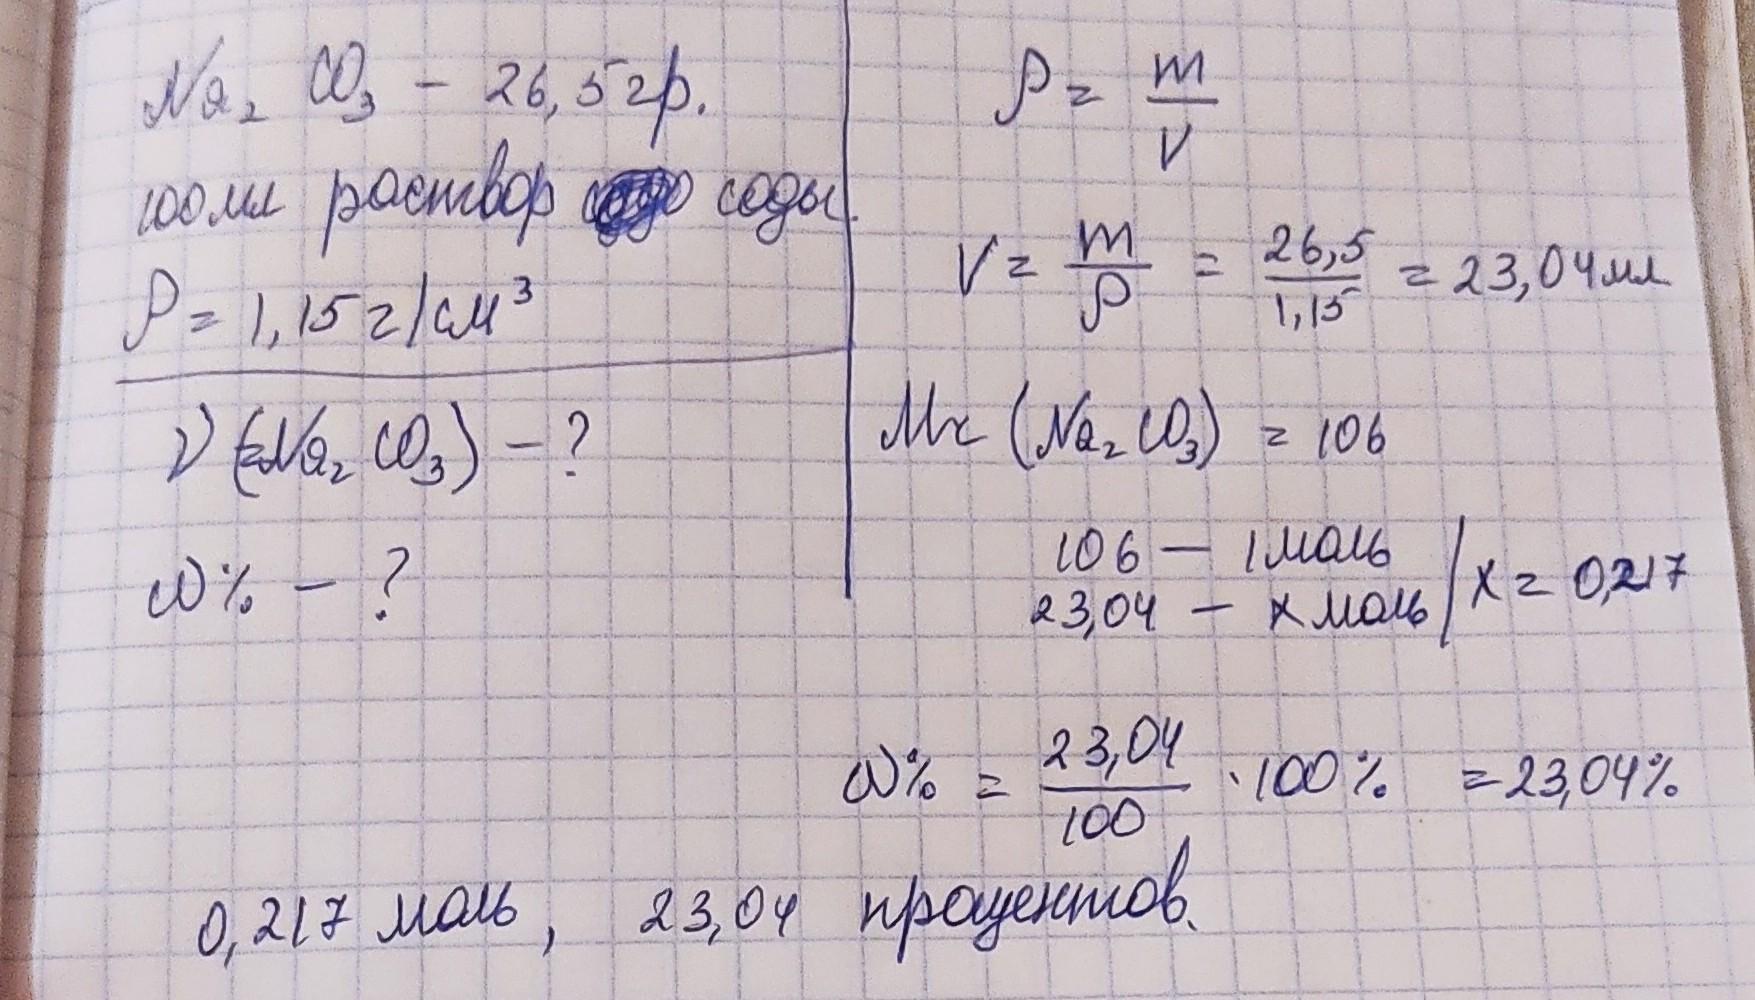 Na₂ CO₃ – 26,5 гр.
100 мл раствор соды.
ρ = 1,15 г/см³
ν (Na₂ CO₃) – ?
ω% – ?
ρ = m/V
V = m/ρ = 26,5/1,15 = 23,04 мл
Mr (Na₂ CO₃) = 106
106 – 1 моль
23,04 – x моль | x = 0,217
ω% = 23,04/100 · 100% = 23,04%
0,217 моль, 23,04 процентов.